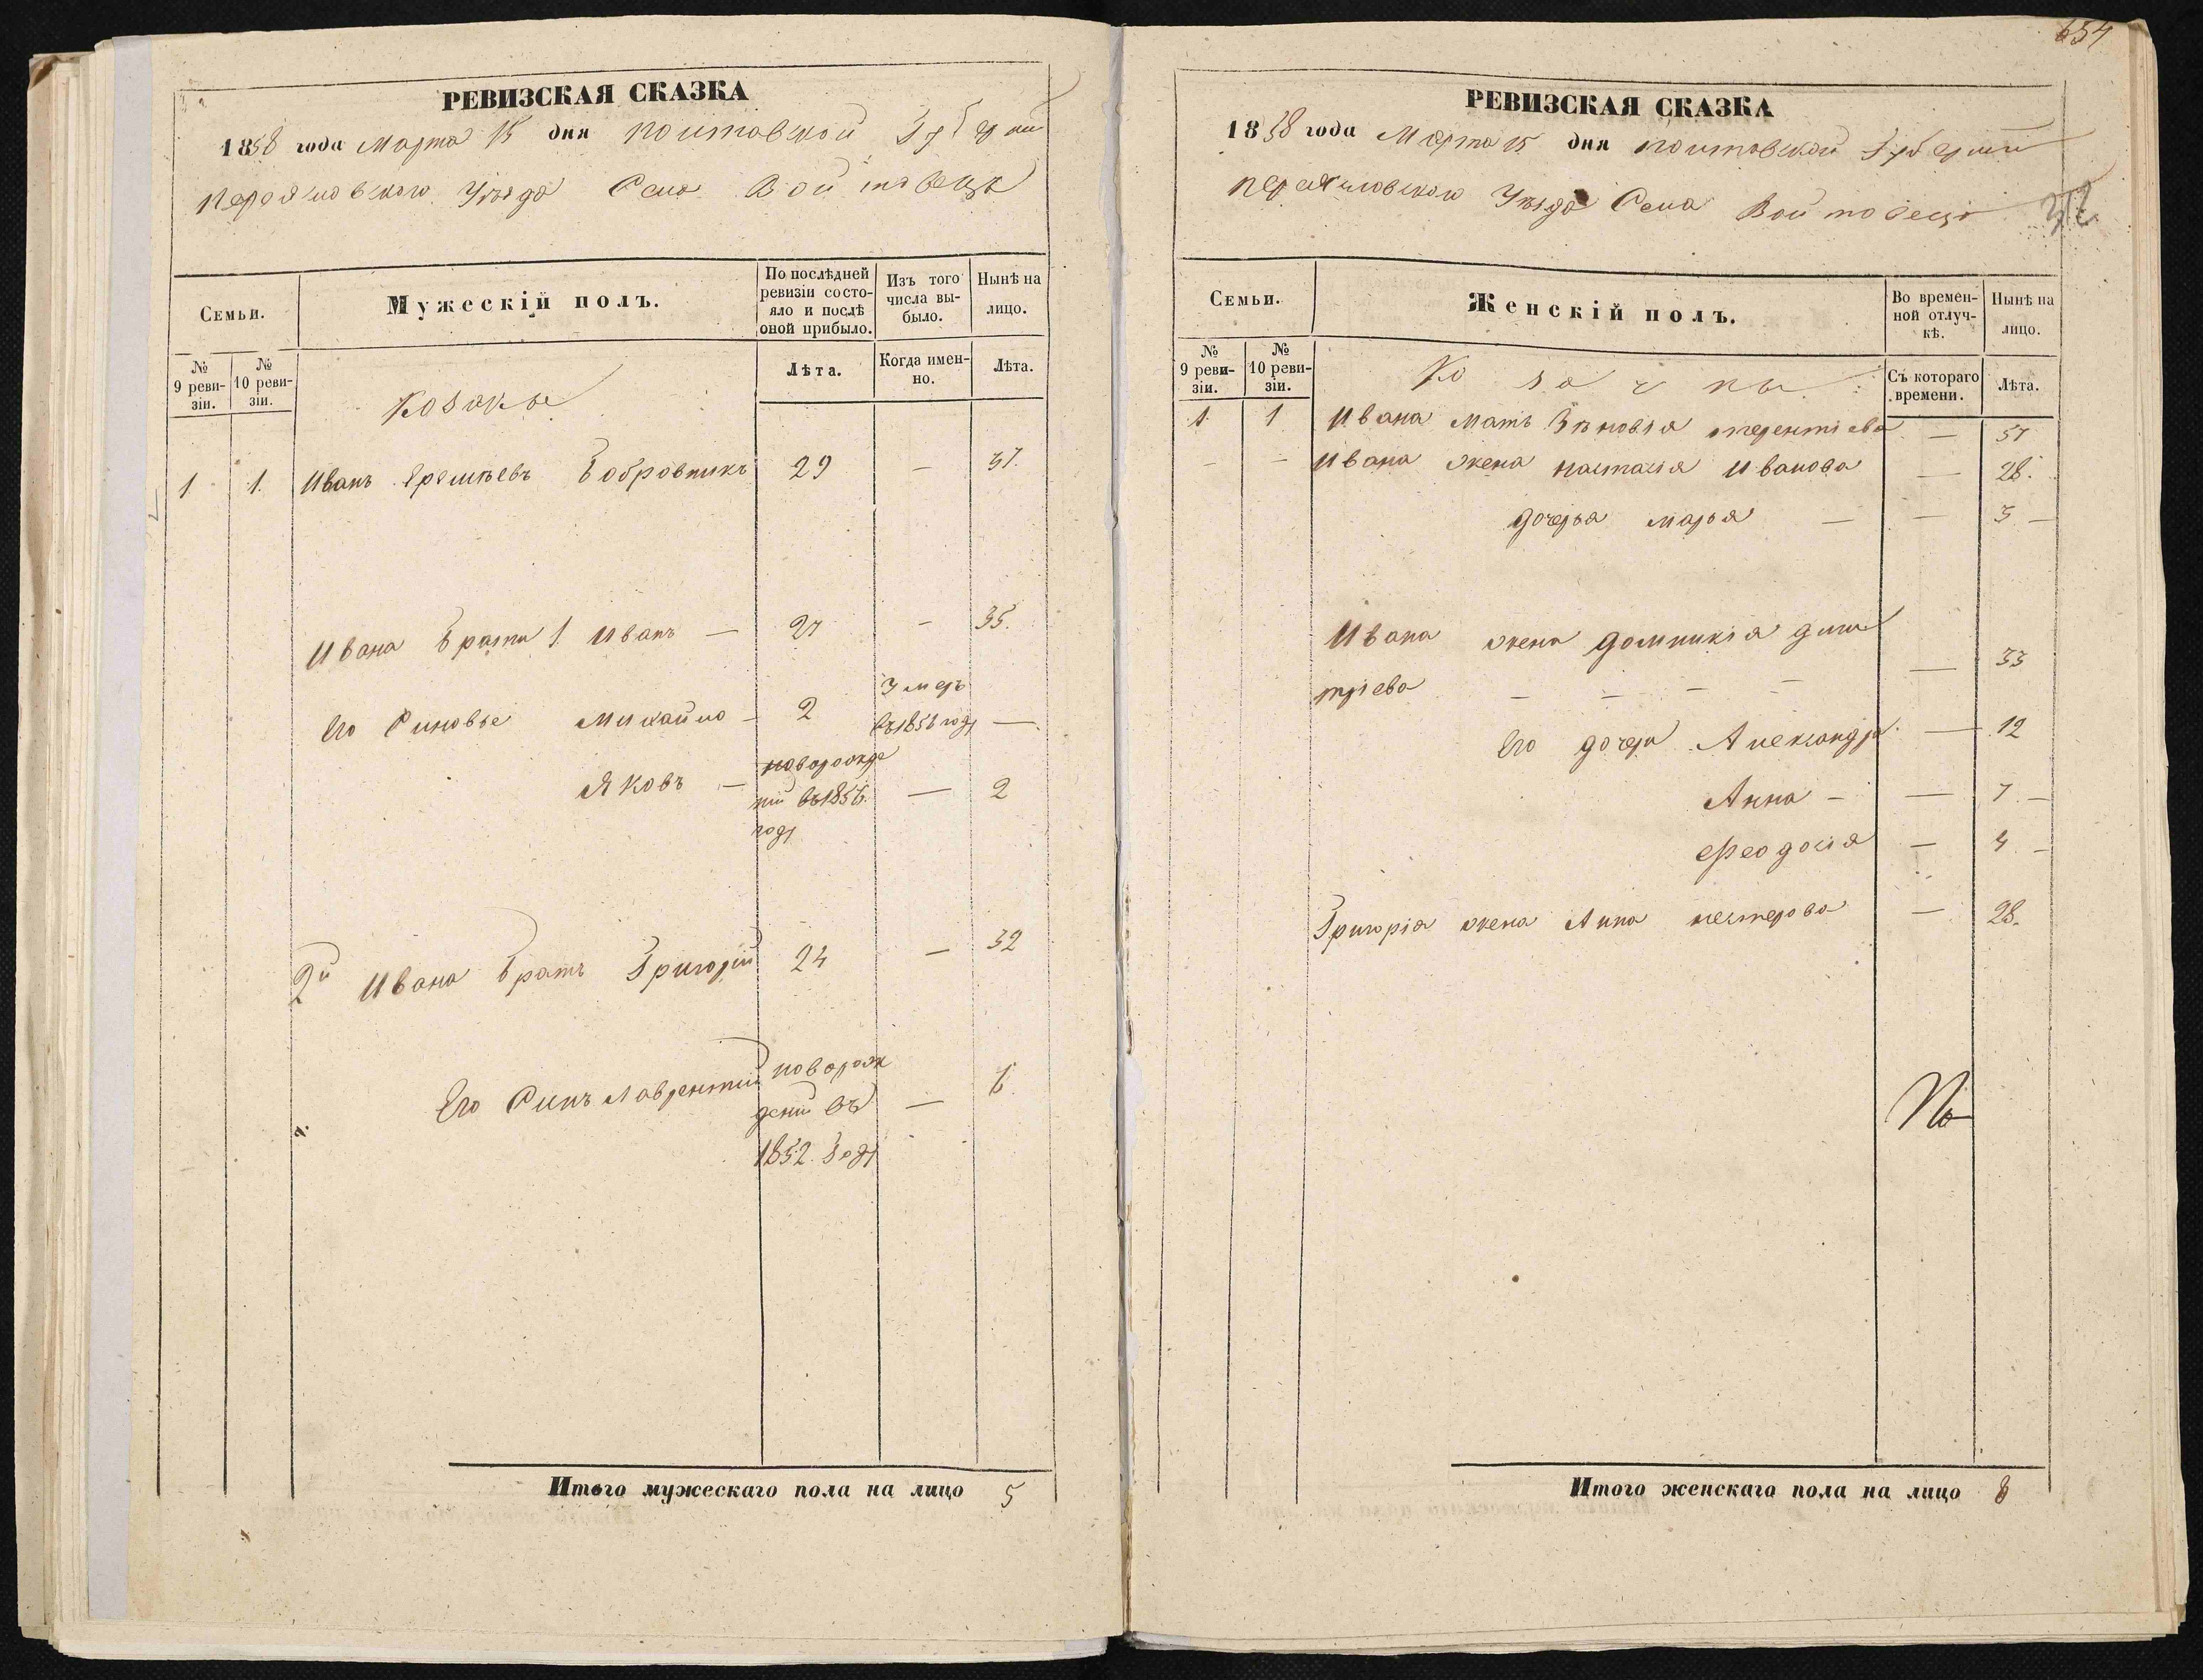 РЕВИЗСКАЯ СКАЗКА
1858 года Марта 15 дня Полтавской Губерніи
Переяславского Уѣзда Села Войтовецъ
Семьи.
Мужескій полъ.
По послѣдней ревизіи состояло и послѣ оной прибыло.
Изъ того числа выбыло.
Нынѣ на лицо.
№ 9 ревизіи.
№ 10 ревизіи.
Козаки
Лѣта.
Когда именно.
Лѣта.
1 1. Иванъ Еремѣевъ Бобровникъ 29 — 37.
Ивана Брати 1. Иванъ — 27 — 35.
Его Синовье Михайло — 2 Умеръ въ 1856 году —
Яковъ — новорожденій въ 1856. году — 2
2й Ивана Братъ Григорій 24 — 32
Его Синъ Лаврентий новорожденій въ 1852. Году — 6
Итого мужескаго пола на лицо 5
654
РЕВИЗСКАЯ СКАЗКА
1858 года Марта 15 дня Полтавской Губерніи
Переясловского Уѣзда Села Войтовецъ
Семьи.
Женскій полъ.
Во временной отлучкѣ.
Нынѣ на лицо.
№ 9 ревизіи.
№ 10 ревизіи.
Козачки
Съ котораго времени.
Лѣта.
1. 1 Ивана Мать Зѣновія Терентіева — 57
— — Ивана жена Настасія Иванова — 28.
дочерья Марья — — 3 —
Ивана жена Домникія Дми
тріева — — — — — 33
Его дочери Александра. — 12
Анна — — 7 —
Феодосія — 4 —
Григорія жена Анна Нестерова — 28.
Итого женскаго пола на лицо 8